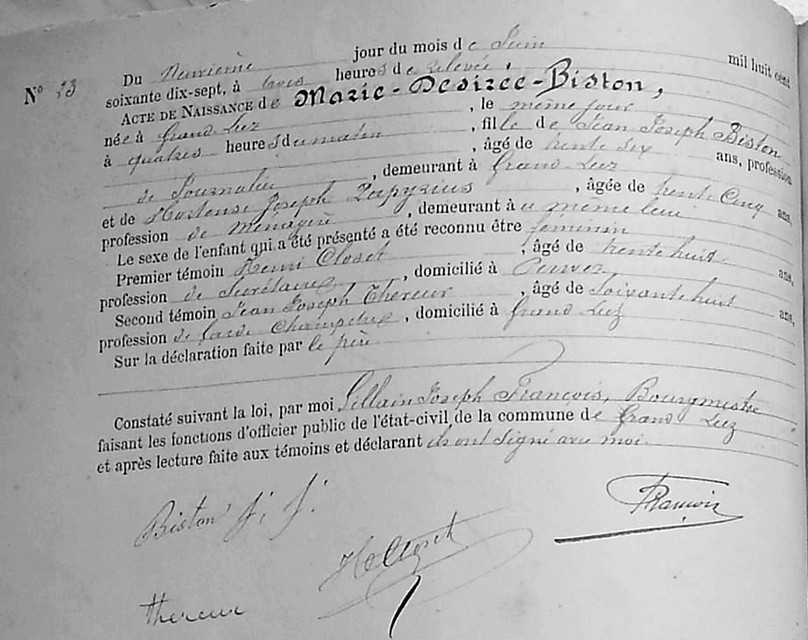 N° 23
Du Neuvième jour du mois de Juin mil huit cent
soixante dix-sept, à trois heures de relevée,
ACTE DE NAISSANCE de Marie-Desirée-Biston,
née à Grand Lez, le même jour
à quatre heures du matin, fille de Jean Joseph Biston
âgé de trente six ans, profession
de Journalier, demeurant à Grand Lez
et de Hortense Joseph, âgée de trente Cinq ans,
profession de Ménagère, demeurant à u même lieu
Le sexe de l'enfant qui a été présenté a été reconnu être féminin
Premier témoin Henri Closet, âgé de trente huit ans,
profession de Secrétaire, domicilié à Perwez,
Second témoin Jean Joseph Thereur, âgé de Soixante huit ans,
profession de Garde Champêtre, domicilié à Grand Lez
Sur la déclaration faite par le père
Constaté suivant la loi, par moi Gillain Joseph François, Bourgmestre
faisant les fonctions d'officier public de l'état-civil, de la commune de Grand Lez
et après lecture faite aux témoins et déclarant ils ont signé avec moi.
Biston J. J.
François
H Closet
thereur